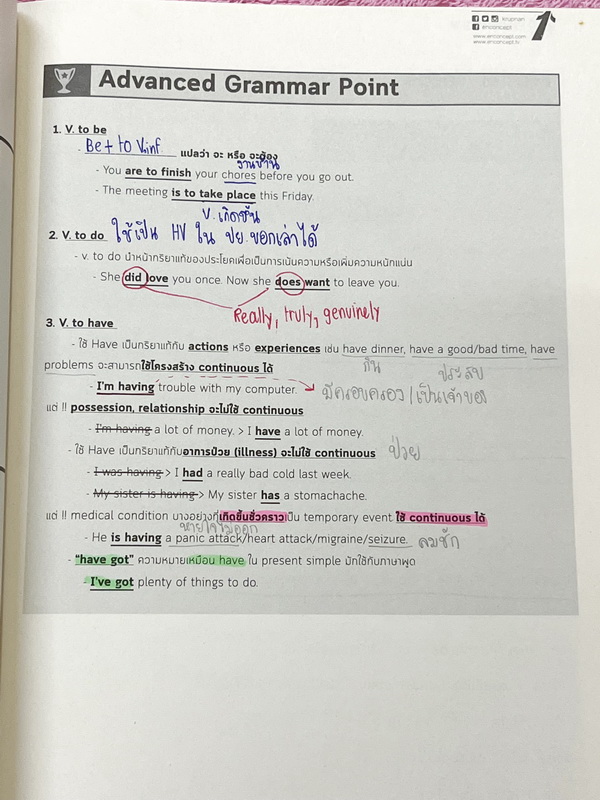 krupnan
enconcept
www.enconcept.com
www.enconcept.tv
Advanced Grammar Point
1. V. to be
- Be + to V.inf แปลว่า จะ หรือ จะต้อง
งานบ้าน
- You are to finish your chores before you go out.
- The meeting is to take place this Friday.
V. เกิดขึ้น
2. V. to do ใช้เป็น HV ใน ปย. บอกเล่าได้
- v. to do นำหน้ากริยาแท้ของประโยคเพื่อเป็นการเน้นความหรือเพิ่มความหนักแน่น
- She did love you once. Now she does want to leave you.
Really, truly, genuinely
3. V. to have
- ใช้ Have เป็นกริยาแท้กับ actions หรือ experiences เช่น have dinner, have a good/bad time, have
problems จะสามารถใช้โครงสร้าง continuous ได้
กิน ประสบ
- I'm having trouble with my computer.
มีครอบครอง / เป็นเจ้าของ
แต่ !! possession, relationship จะไม่ใช้ continuous
- I'm having a lot of money. > I have a lot of money.
- ใช้ Have เป็นกริยาแท้กับอาการป่วย (illness) จะไม่ใช้ continuous ป่วย
- I was having > I had a really bad cold last week.
- My sister is having > My sister has a stomachache.
แต่ !! medical condition บางอย่างที่เกิดขึ้นชั่วคราวเป็น temporary event ใช้ continuous ได้
หายใจไม่ออก
- He is having a panic attack/heart attack/migraine/seizure. ลมชัก
- "have got" ความหมายเหมือน have ใน present simple มักใช้กับภาษาพูด
- I've got plenty of things to do.